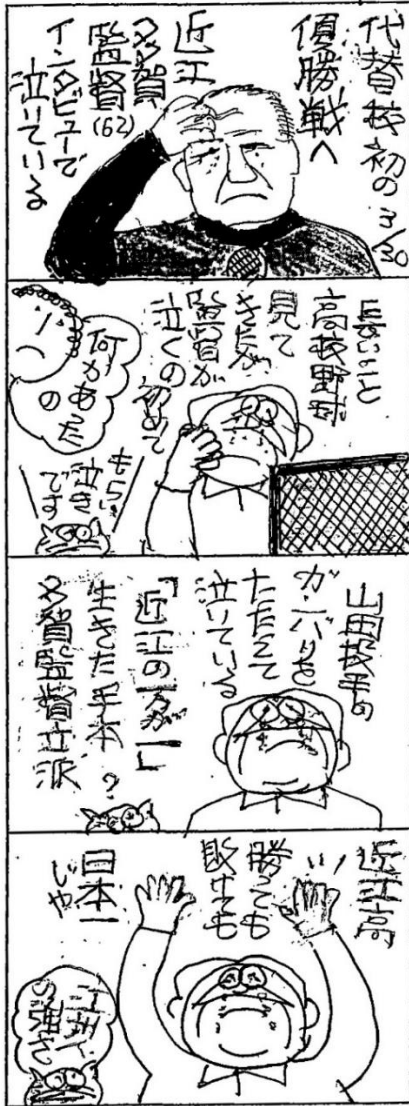 代替校初の 3/30
優勝戦へ
近江
多賀
監督(62)
インタビューで
泣いている
長いこと
高校野球
見て
きたが
監督が
泣くの初めて
何があった
の
もらい
泣き
です
山田投手の
ガンバリを
たたえて
泣いている
「近江の
生きた手本 ?
多賀監督立派
近江高
勝っても
敗けても
日本一
じゃ
の強さ